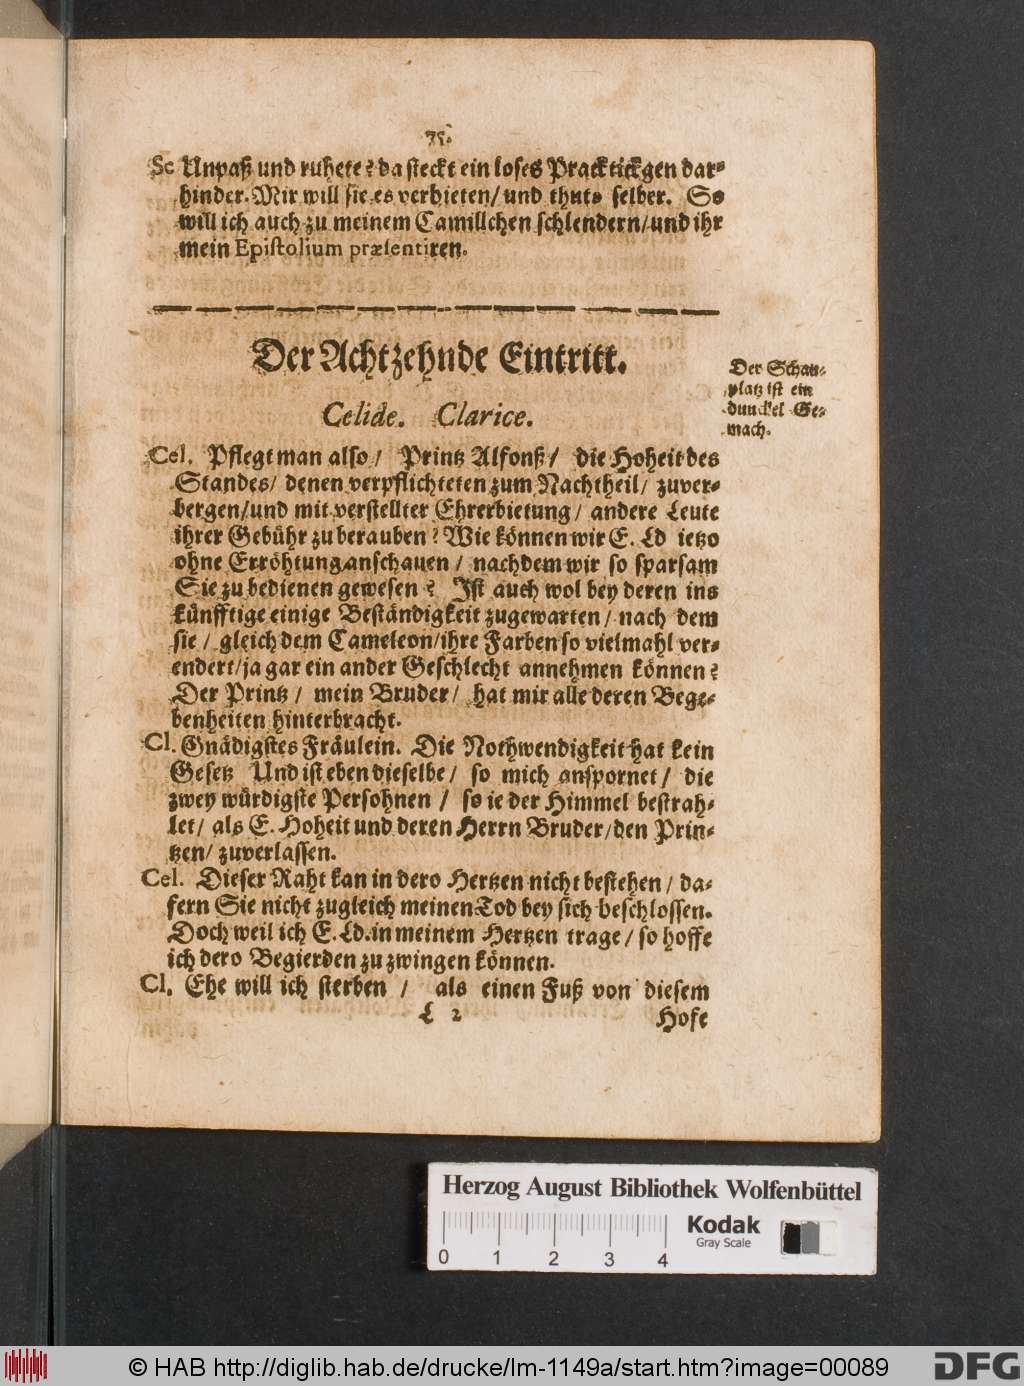 75.
Sc Unpaß und ruhete? da steckt ein loses Pracktickgen dar-
hinder. Mir will sie es verbieten/ und thuts selber. So
will ich auch zu meinem Camillchen schlendern/ und ihr
mein Epistolium præsentiren.
Der Achtzehnde Eintritt.
Der Schau-
platz ist ein
dunckel Ge-
mach.
Celide. Clarice.
Cel. Pflegt man also/ Printz Alfonß/ die Hoheit des
Standes/ denen verpflichteten zum Nachtheil/ zuver-
bergen/ und mit verstellter Ehrerbietung/ andere Leute
ihrer Gebühr zu berauben? Wie können wir E. Ld ietzo
ohne Erröhtung anschauen/ nachdem wir so sparsam
Sie zu bedienen gewesen? Ist auch wol bey deren ins
künfftige einige Beständigkeit zugewarten/ nach dem
sie/ gleich dem Cameleon/ ihre Farben so vielmahl ver-
endert/ ja gar ein ander Geschlecht annehmen können?
Der Printz/ mein Bruder/ hat mir alle deren Bege-
benheiten hinterbracht.
Cl. Gnädigstes Fräulein. Die Nothwendigkeit hat kein
Gesetz Und ist eben dieselbe/ so mich anspornet/ die
zwey würdigste Persohnen/ so ie der Himmel bestrah-
let/ als E. Hoheit und deren Herrn Bruder/ den Prin-
tzen/ zuverlassen.
Cel. Dieser Raht kan in dero Hertzen nicht bestehen/ da-
fern Sie nicht zugleich meinen Tod bey sich beschlossen.
Doch weil ich E. Ld. in meinem Hertzen trage/ so hoffe
ich dero Begierden zu zwingen können.
Cl. Ehe will ich sterben/ als einen Fuß von diesem
L 2 Hofe
Herzog August Bibliothek Wolfenbüttel
Kodak
Gray Scale
0 1 2 3 4
© HAB http://diglib.hab.de/drucke/lm-1149a/start.htm?image=00089
DFG